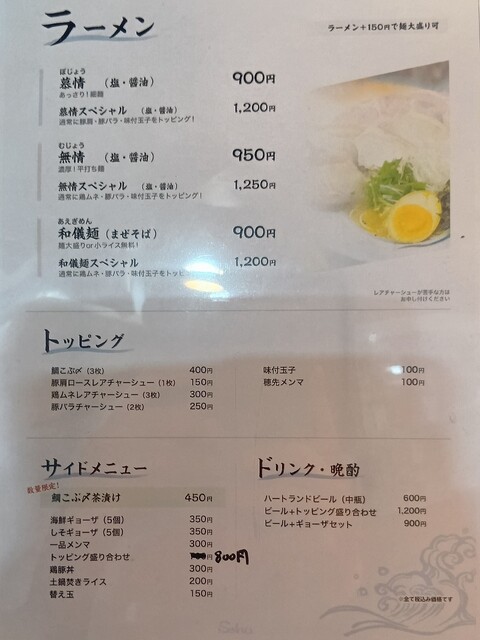 ラーメン
ラーメン+150円で麺大盛り可
ぼじょう
慕情 (塩・醤油) 900円
あっさり!細麺
慕情スペシャル (塩・醤油) 1,200円
通常に豚肩・豚バラ・味付玉子をトッピング!
むじょう
無情 (塩・醤油) 950円
濃厚!平打ち麺
無情スペシャル (塩・醤油) 1,250円
通常に鶏ムネ・豚バラ・味付玉子をトッピング!
あえぎめん
和儀麺 (まぜそば) 900円
麺大盛りor小ライス無料!
和儀麺スペシャル 1,200円
通常に鶏ムネ・豚バラ・味付玉子をトッピ
レアチャーシューが苦手な方は
お申し付けください
トッピング
鯛こぶ〆 (3枚) 400円
豚肩ロースレアチャーシュー (1枚) 150円
鶏ムネレアチャーシュー (3枚) 300円
豚バラチャーシュー (2枚) 250円
味付玉子 100円
穂先メンマ 100円
サイドメニュー
数量限定!
鯛こぶ〆茶漬け 450円
海鮮ギョーザ (5個) 350円
しそギョーザ (5個) 350円
一品メンマ 300円
トッピング盛り合わせ 円 800円
鶏豚丼 300円
土鍋焚きライス 200円
替え玉 150円
ドリンク・晩酌
ハートランドビール (中瓶) 600円
ビール+トッピング盛り合わせ 1,200円
ビール+ギョーザセット 900円
※全て税込み価格です